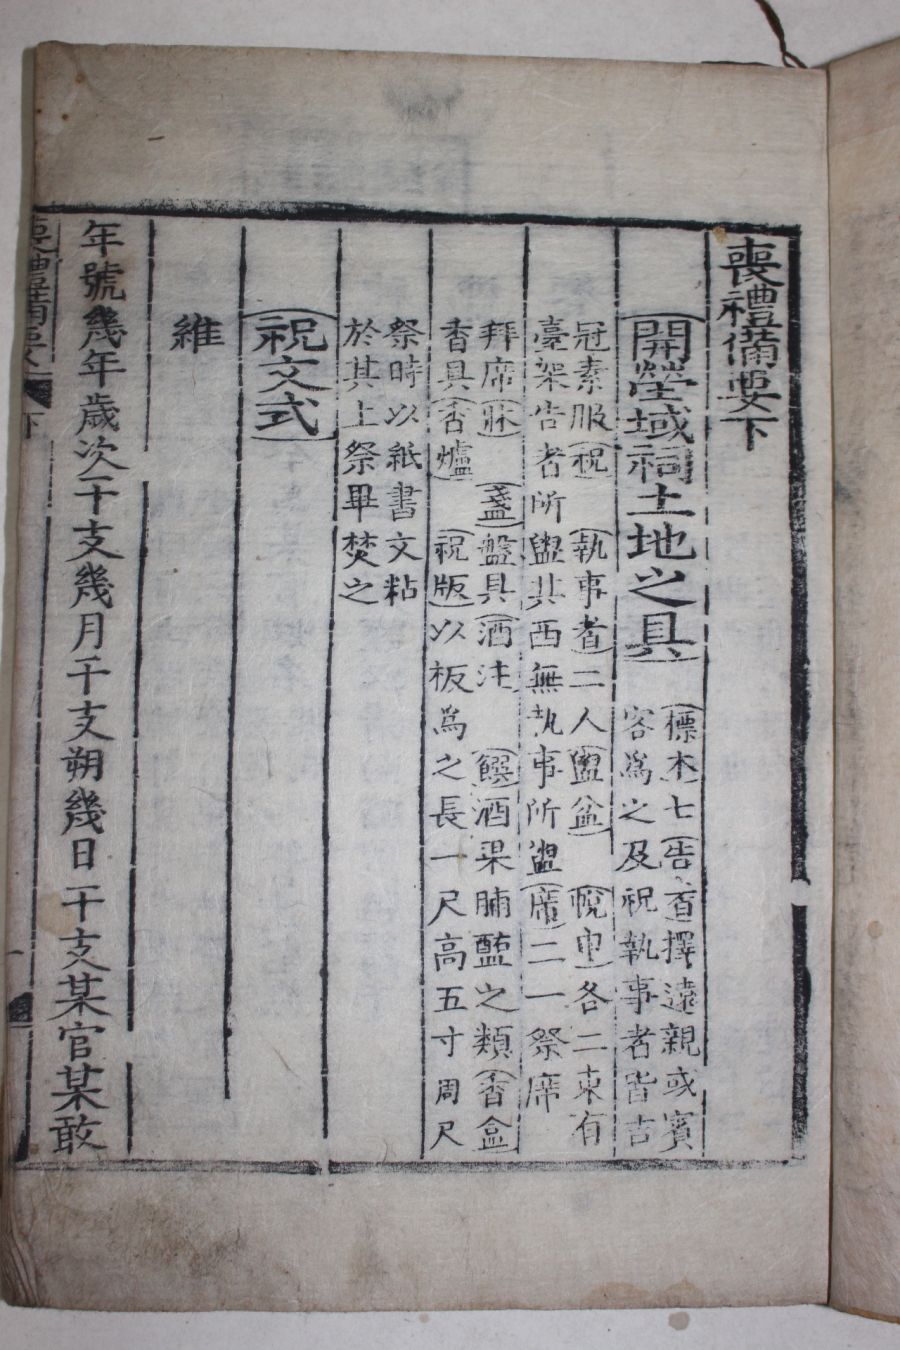 喪禮備要下
開塋域祠土地之具
標木七告者擇遠親或賓
客爲之及祝執事者皆吉
冠素服祝執事者二人盥盆帨巾各二東有
臺架告者所盥其西無執事所盥席二一祭席
拜席牀盞盤具酒注饌酒果脯醢之類香盒
香具香爐祝版以板爲之長一尺高五寸周尺
祭時以紙書文粘
於其上祭畢焚之
祝文式
維
年號幾年歲次干支幾月干支朔幾日干支某官某敢
喪禮備要
下
一